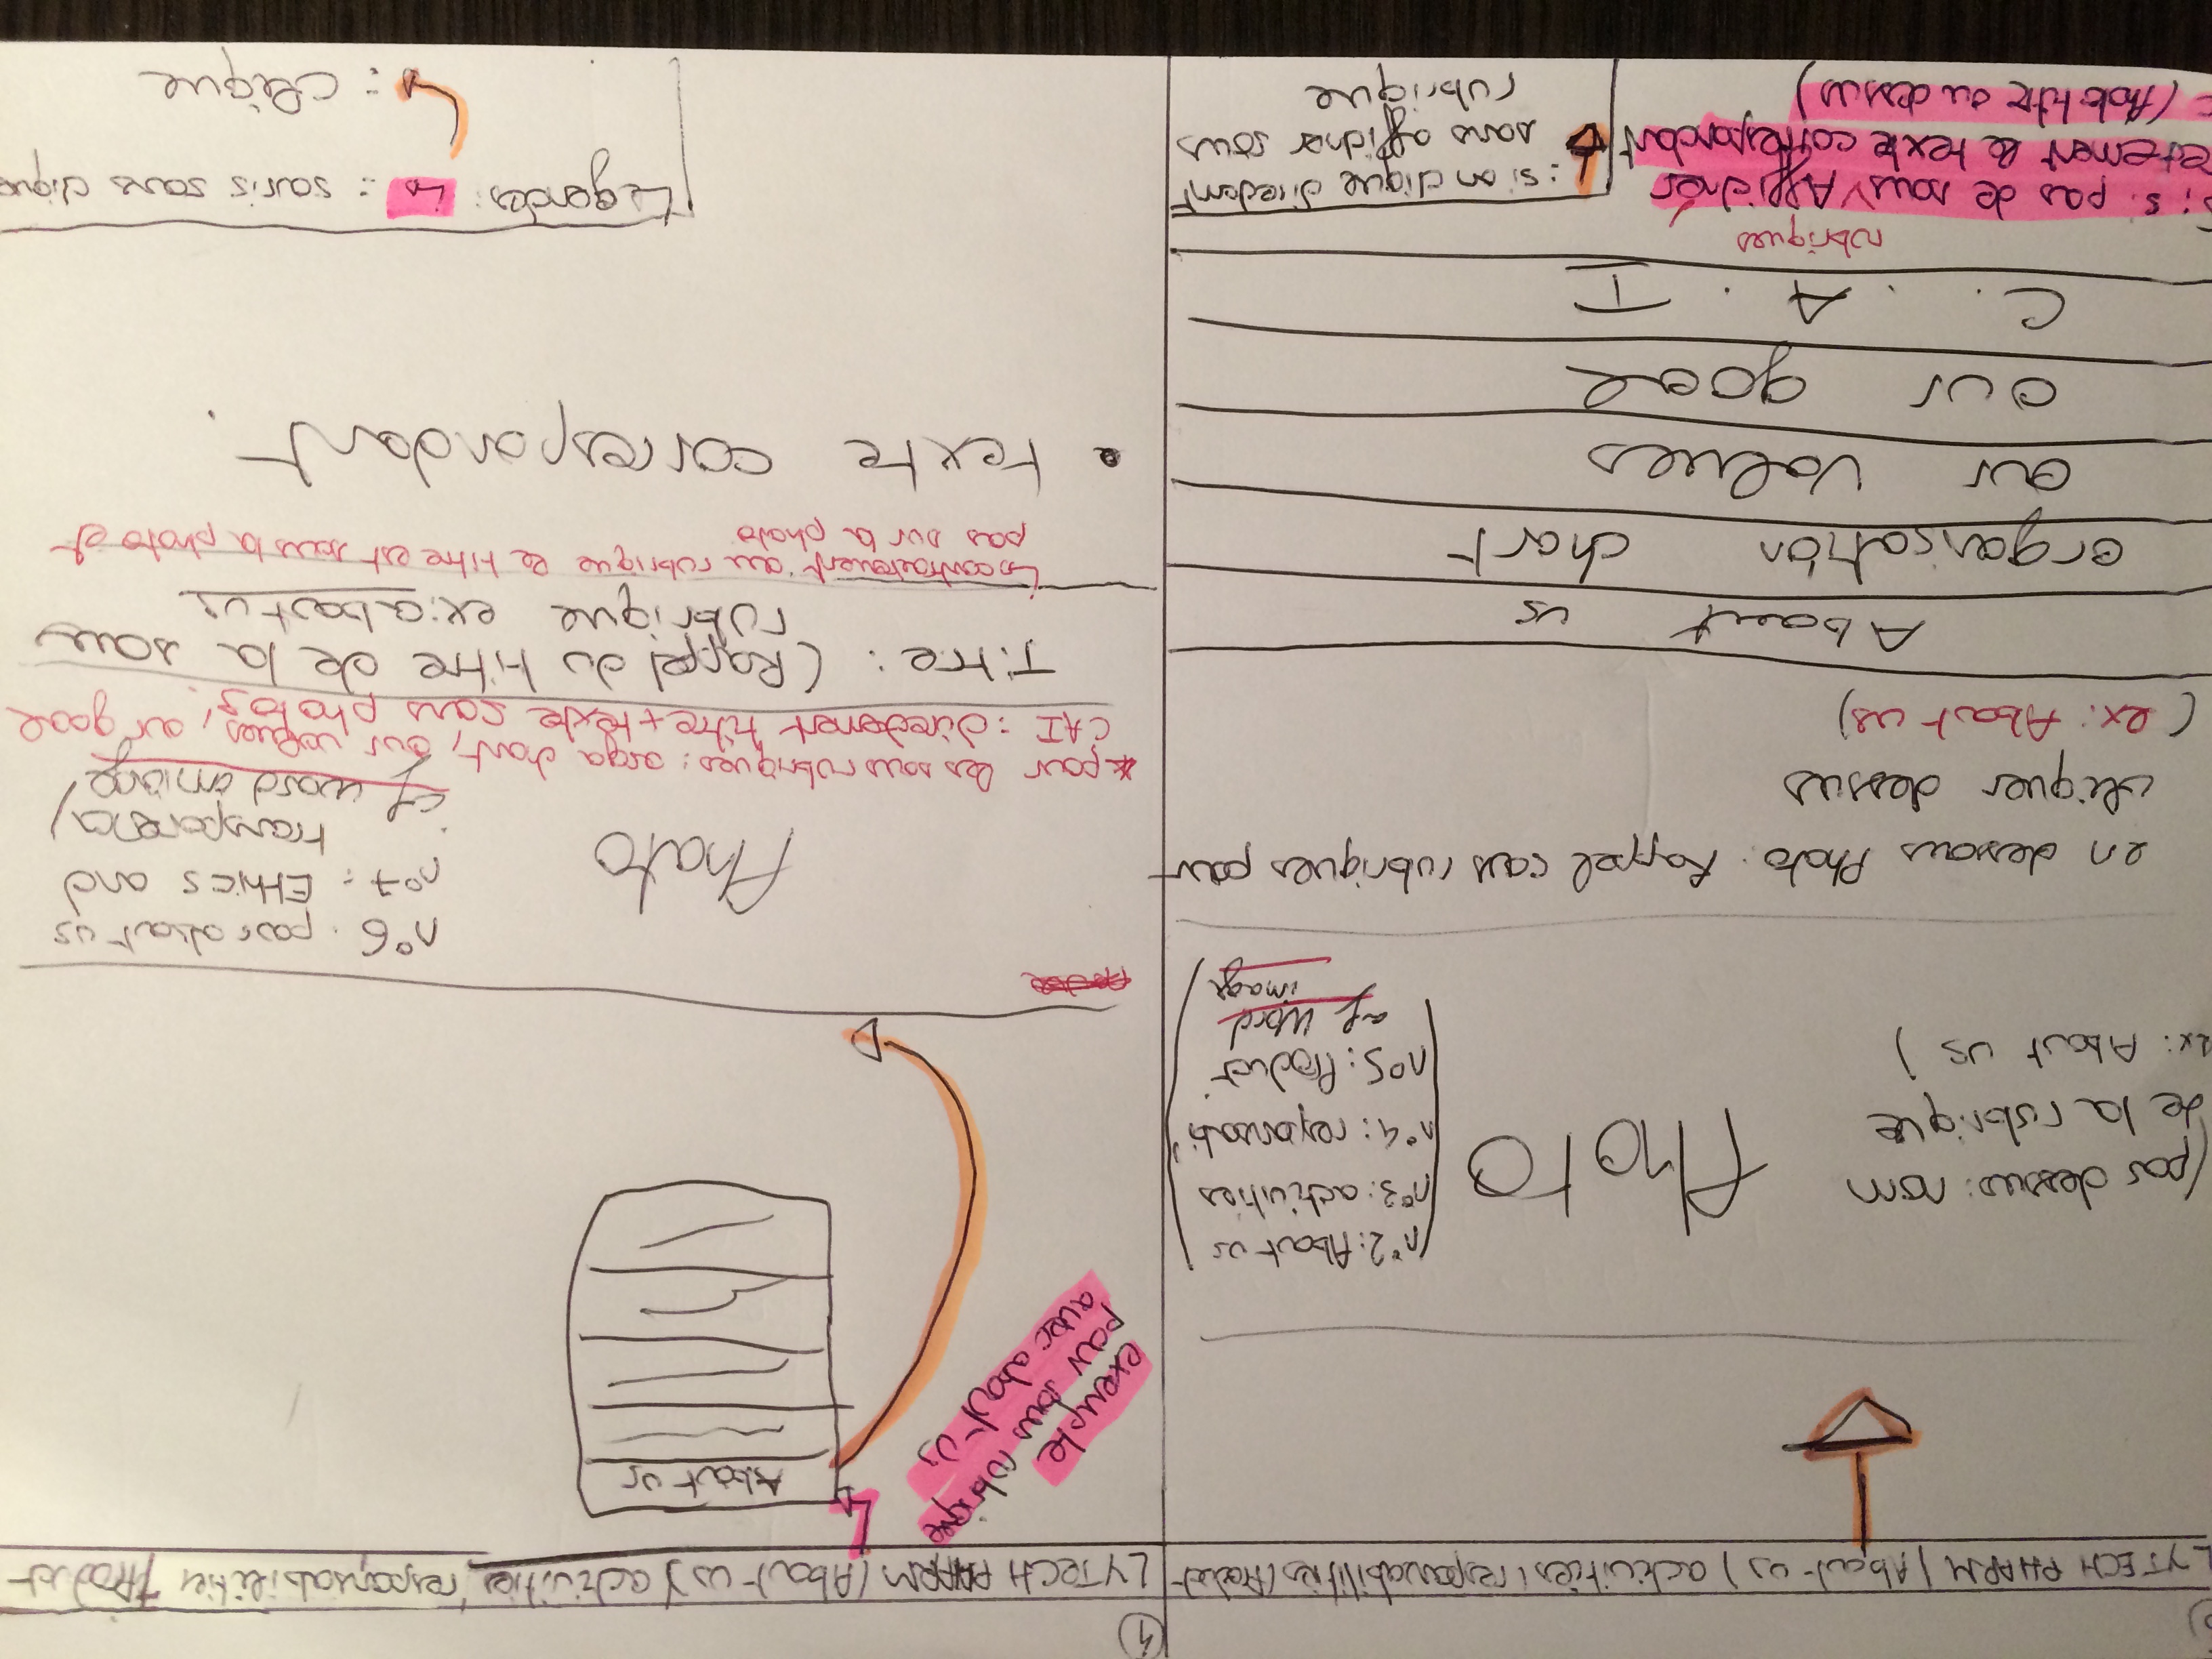 LYTECH PHARM / About-us / activities / responsabilities / Product
(par dessus: nom
de la rubrique
ex: About us )
Photo
(n°2: About us
n°3: activities
n°4: responsabi
n°5: Product
cf Word
image)
en dessous Photo. Rappel sous rubriques pour
cliquer dessus
( ex: About us)
About us
organisation chart
our values
our goal
C. . A . I
rubriques
; si pas de sous Afficher
rectement le texte correspondant
(Photo titre au dessus)
: si on clique directemt
sans afficher sous
rubrique
4
LYTECH PHARM (About-us) activities responsabilities / Product
exemple
pour sous rubrique
avec about us
About us
Photo
n°6. pour about us
n°7: Ethics and
transparency
cf word image
* pour les sous rubriques: orga chart, our values, our goal
CAI : directement titre + texte sans photos.
Titre: (Rappel du titre de la sous
rubrique ex: about us
↳ contrairement au rubrique le titre est sous la photo et
pas sur la photo
• texte correspondant.
Legendes: ↳ : souris sans clique
↳ : clique